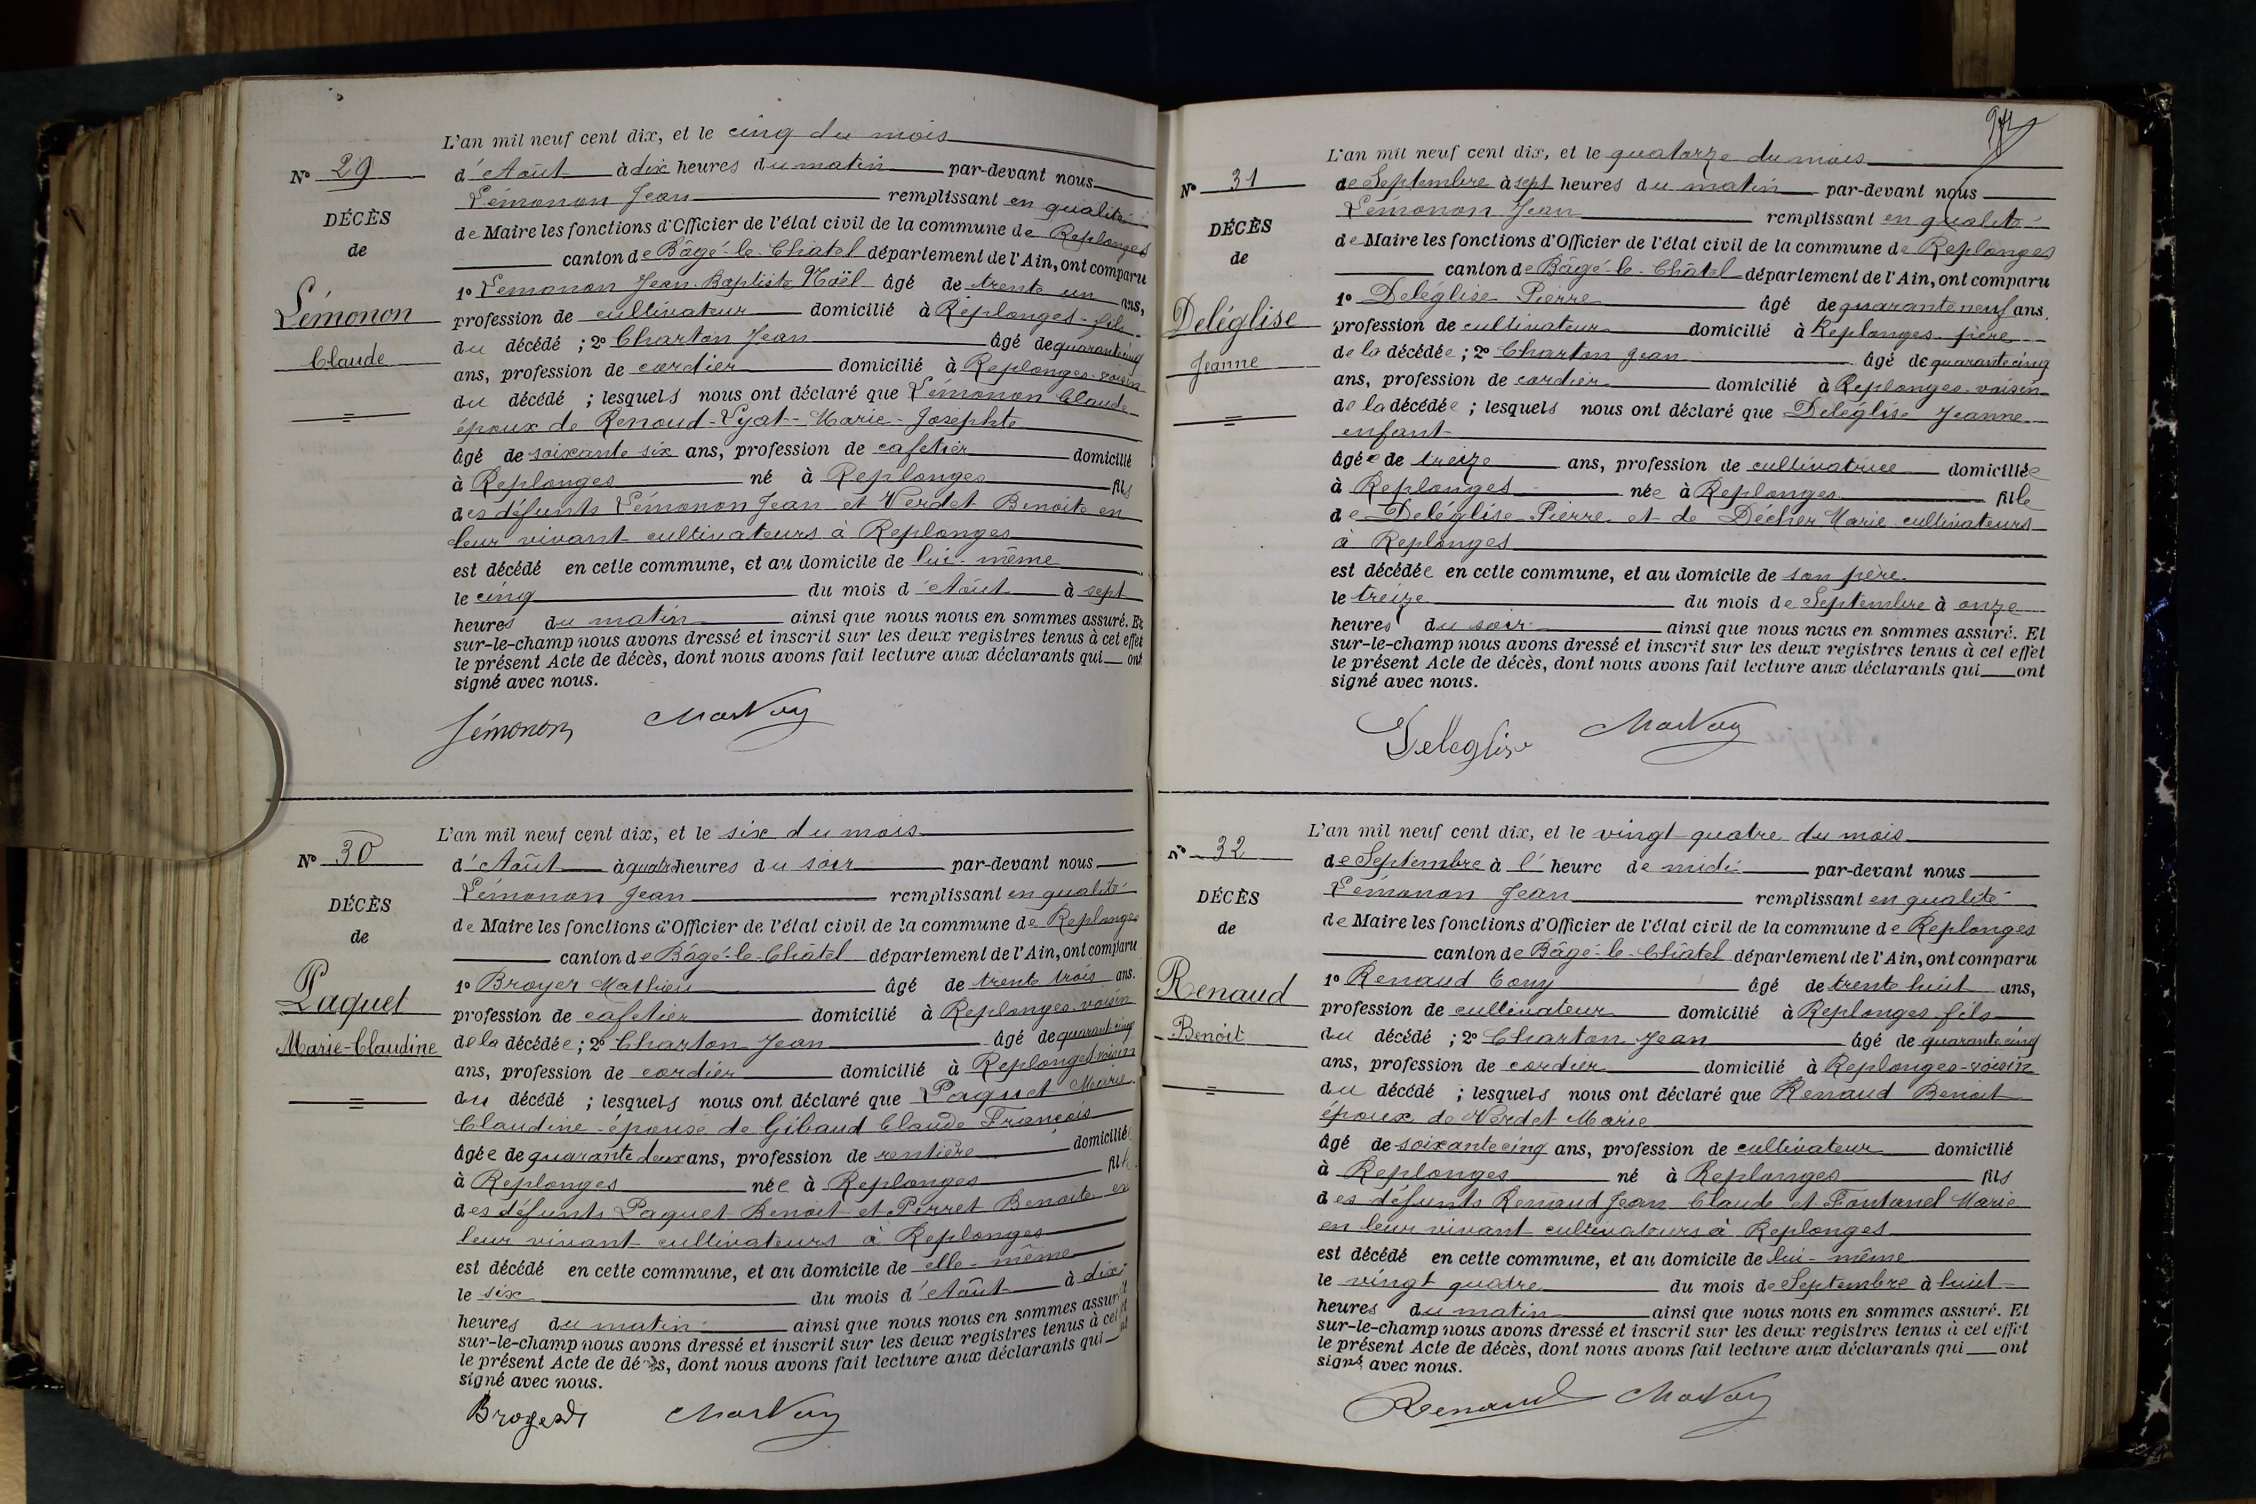 N° 29
DÉCÈS
de
Lémonon
Claude
L'an mil neuf cent dix, et le cinq du mois
d'Août à dix heures du matin par-devant nous
Lémonon Jean remplissant en qualité
de Maire les fonctions d'Officier de l'état civil de la commune de Replonges
canton de Bâgé-le-Châtel département de l'Ain, ont comparu
1° Lémonon Jean-Baptiste Noël âgé de trente un ans,
profession de cultivateur domicilié à Replonges fils
du décédé ; 2° Charton Jean âgé de quarante cinq
ans, profession de cordier domicilié à Replonges-voisin
du décédé ; lesquels nous ont déclaré que Lémonon Claude
époux de Renoud-Lyat-Marie-Josephte
âgé de soixante six ans, profession de cafetier domicilié
à Replonges né à Replonges fils
des défunts Lémonon Jean et Verdet Benoite en
leur vivant cultivateurs à Replonges
est décédé en cette commune, et au domicile de lui-même
le cinq du mois d'Août à sept
heures du matin ainsi que nous nous en sommes assuré. Et
sur-le-champ nous avons dressé et inscrit sur les deux registres tenus à cet effet
le présent Acte de décès, dont nous avons fait lecture aux déclarants qui ont
signé avec nous.
Lémonon
N° 30
DÉCÈS
de
Paquet
Marie-Claudine
L'an mil neuf cent dix, et le six du mois
d'Août à quatre heures du soir par-devant nous
Lémonon Jean remplissant en qualité
de Maire les fonctions d'Officier de l'état civil de la commune de Replonges
canton de Bâgé-le-Châtel département de l'Ain, ont comparu
1° Broyer Mathieu âgé de trente trois ans.
profession de cafetier domicilié à Replonges-voisin
de la décédée ; 2° Charton Jean âgé de quarante cinq
ans, profession de cordier domicilié à Replonges voisin
du décédé ; lesquels nous ont déclaré que Paquet Marie
Claudine épouse de Gibaud Claude François
âgée de quarante deux ans, profession de rentière domiciliée
à Replonges née à Replonges fille
des défunts Paquet Benoit et Perret Benoite en
leur vivant cultivateurs à Replonges
est décédé en cette commune, et au domicile de elle-même
le six du mois d'Août à dix
heures du matin ainsi que nous nous en sommes assuré. Et
sur-le-champ nous avons dressé et inscrit sur les deux registres tenus à cet effet
le présent Acte de décès, dont nous avons fait lecture aux déclarants qui ont
signé avec nous.
N° 31
DÉCÈS
de
Deléglise
Jeanne
L'an mil neuf cent dix, et le quatorze du mois
de Septembre à sept heures du matin par-devant nous
Lémonon Jean remplissant en qualité
de Maire les fonctions d'Officier de l'état civil de la commune de Replonges
canton de Bâgé-le-Châtel département de l'Ain, ont comparu
1° Deléglise Pierre âgé de quarante neuf ans.
profession de cultivateur domicilié à Replonges père
de la décédée ; 2° Charton Jean âgé de quarante cinq
ans, profession de cordier domicilié à Replonges-voisin
de la décédée ; lesquels nous ont déclaré que Deléglise Jeanne
enfant
âgée de treize ans, profession de cultivatrice domiciliée
à Replonges née à Replonges fille
de Deléglise Pierre et de Décher Marie cultivateurs
à Replonges
est décédée en cette commune, et au domicile de son père
le treize du mois de Septembre à onze
heures du soir ainsi que nous nous en sommes assuré. Et
sur-le-champ nous avons dressé et inscrit sur les deux registres tenus à cet effet
le présent Acte de décès, dont nous avons fait lecture aux déclarants qui ont
signé avec nous.
Deleglise
N° 32
DÉCÈS
de
Renaud
Benoit
L'an mil neuf cent dix, et le vingt-quatre du mois
de Septembre à l'heure de midi par-devant nous
Lémonon Jean remplissant en qualité
de Maire les fonctions d'Officier de l'état civil de la commune de Replonges
canton de Bâgé-le-Châtel département de l'Ain, ont comparu
1° Renaud Tony âgé de trente huit ans,
profession de cultivateur domicilié à Replonges fils
du décédé ; 2° Charton Jean âgé de quarante cinq
ans, profession de cordier domicilié à Replonges-voisin
du décédé ; lesquels nous ont déclaré que Renaud Benoit
époux de Verdet Marie
âgé de soixante cinq ans, profession de cultivateur domicilié
à Replonges né à Replonges fils
des défunts Renaud Jean Claude et Fontanel Marie
en leur vivant cultivateurs à Replonges
est décédé en cette commune, et au domicile de lui-même
le vingt quatre du mois de Septembre à huit
heures du matin ainsi que nous nous en sommes assuré. Et
sur-le-champ nous avons dressé et inscrit sur les deux registres tenus à cet effet
le présent Acte de décès, dont nous avons fait lecture aux déclarants qui ont
signé avec nous.
Renaud